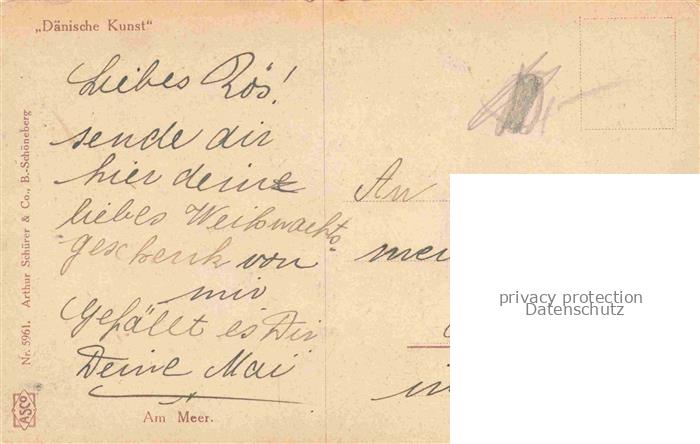 „Dänische Kunst"
Liebes Rös!
sende dir
hier deine
liebes Weihnachts-
geschenk von
mir
Gefällt es Dir
Deine Mai
Am Meer.
Nr. 5961. Arthur Schürer & Co., B.-Schöneberg
ASCO
An
privacy protection
Datenschutz